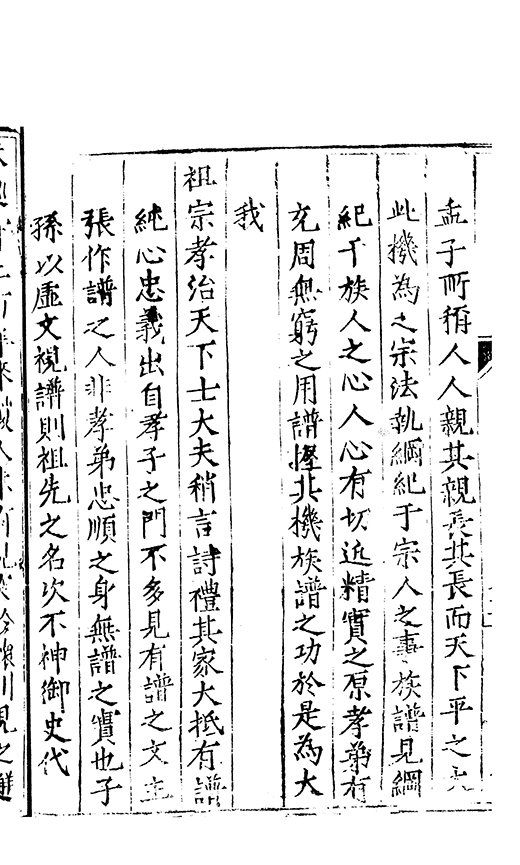 孟子所稱人人親其親長其長而天下平之大
此機為之宗法執綱紀于宗人之事族譜見綱
紀于族人之心人心有切近精實之原孝弟有
充周無窮之用譜握其機族譜之功於是為大
我
祖宗孝治天下士大夫稍言詩禮其家大抵有譜
純心忠義出自孝子之門不多見有譜之文主
張作譜之人非孝弟忠順之身無譜之實也子
孫以虛文視譜則祖先之名次不神御史代